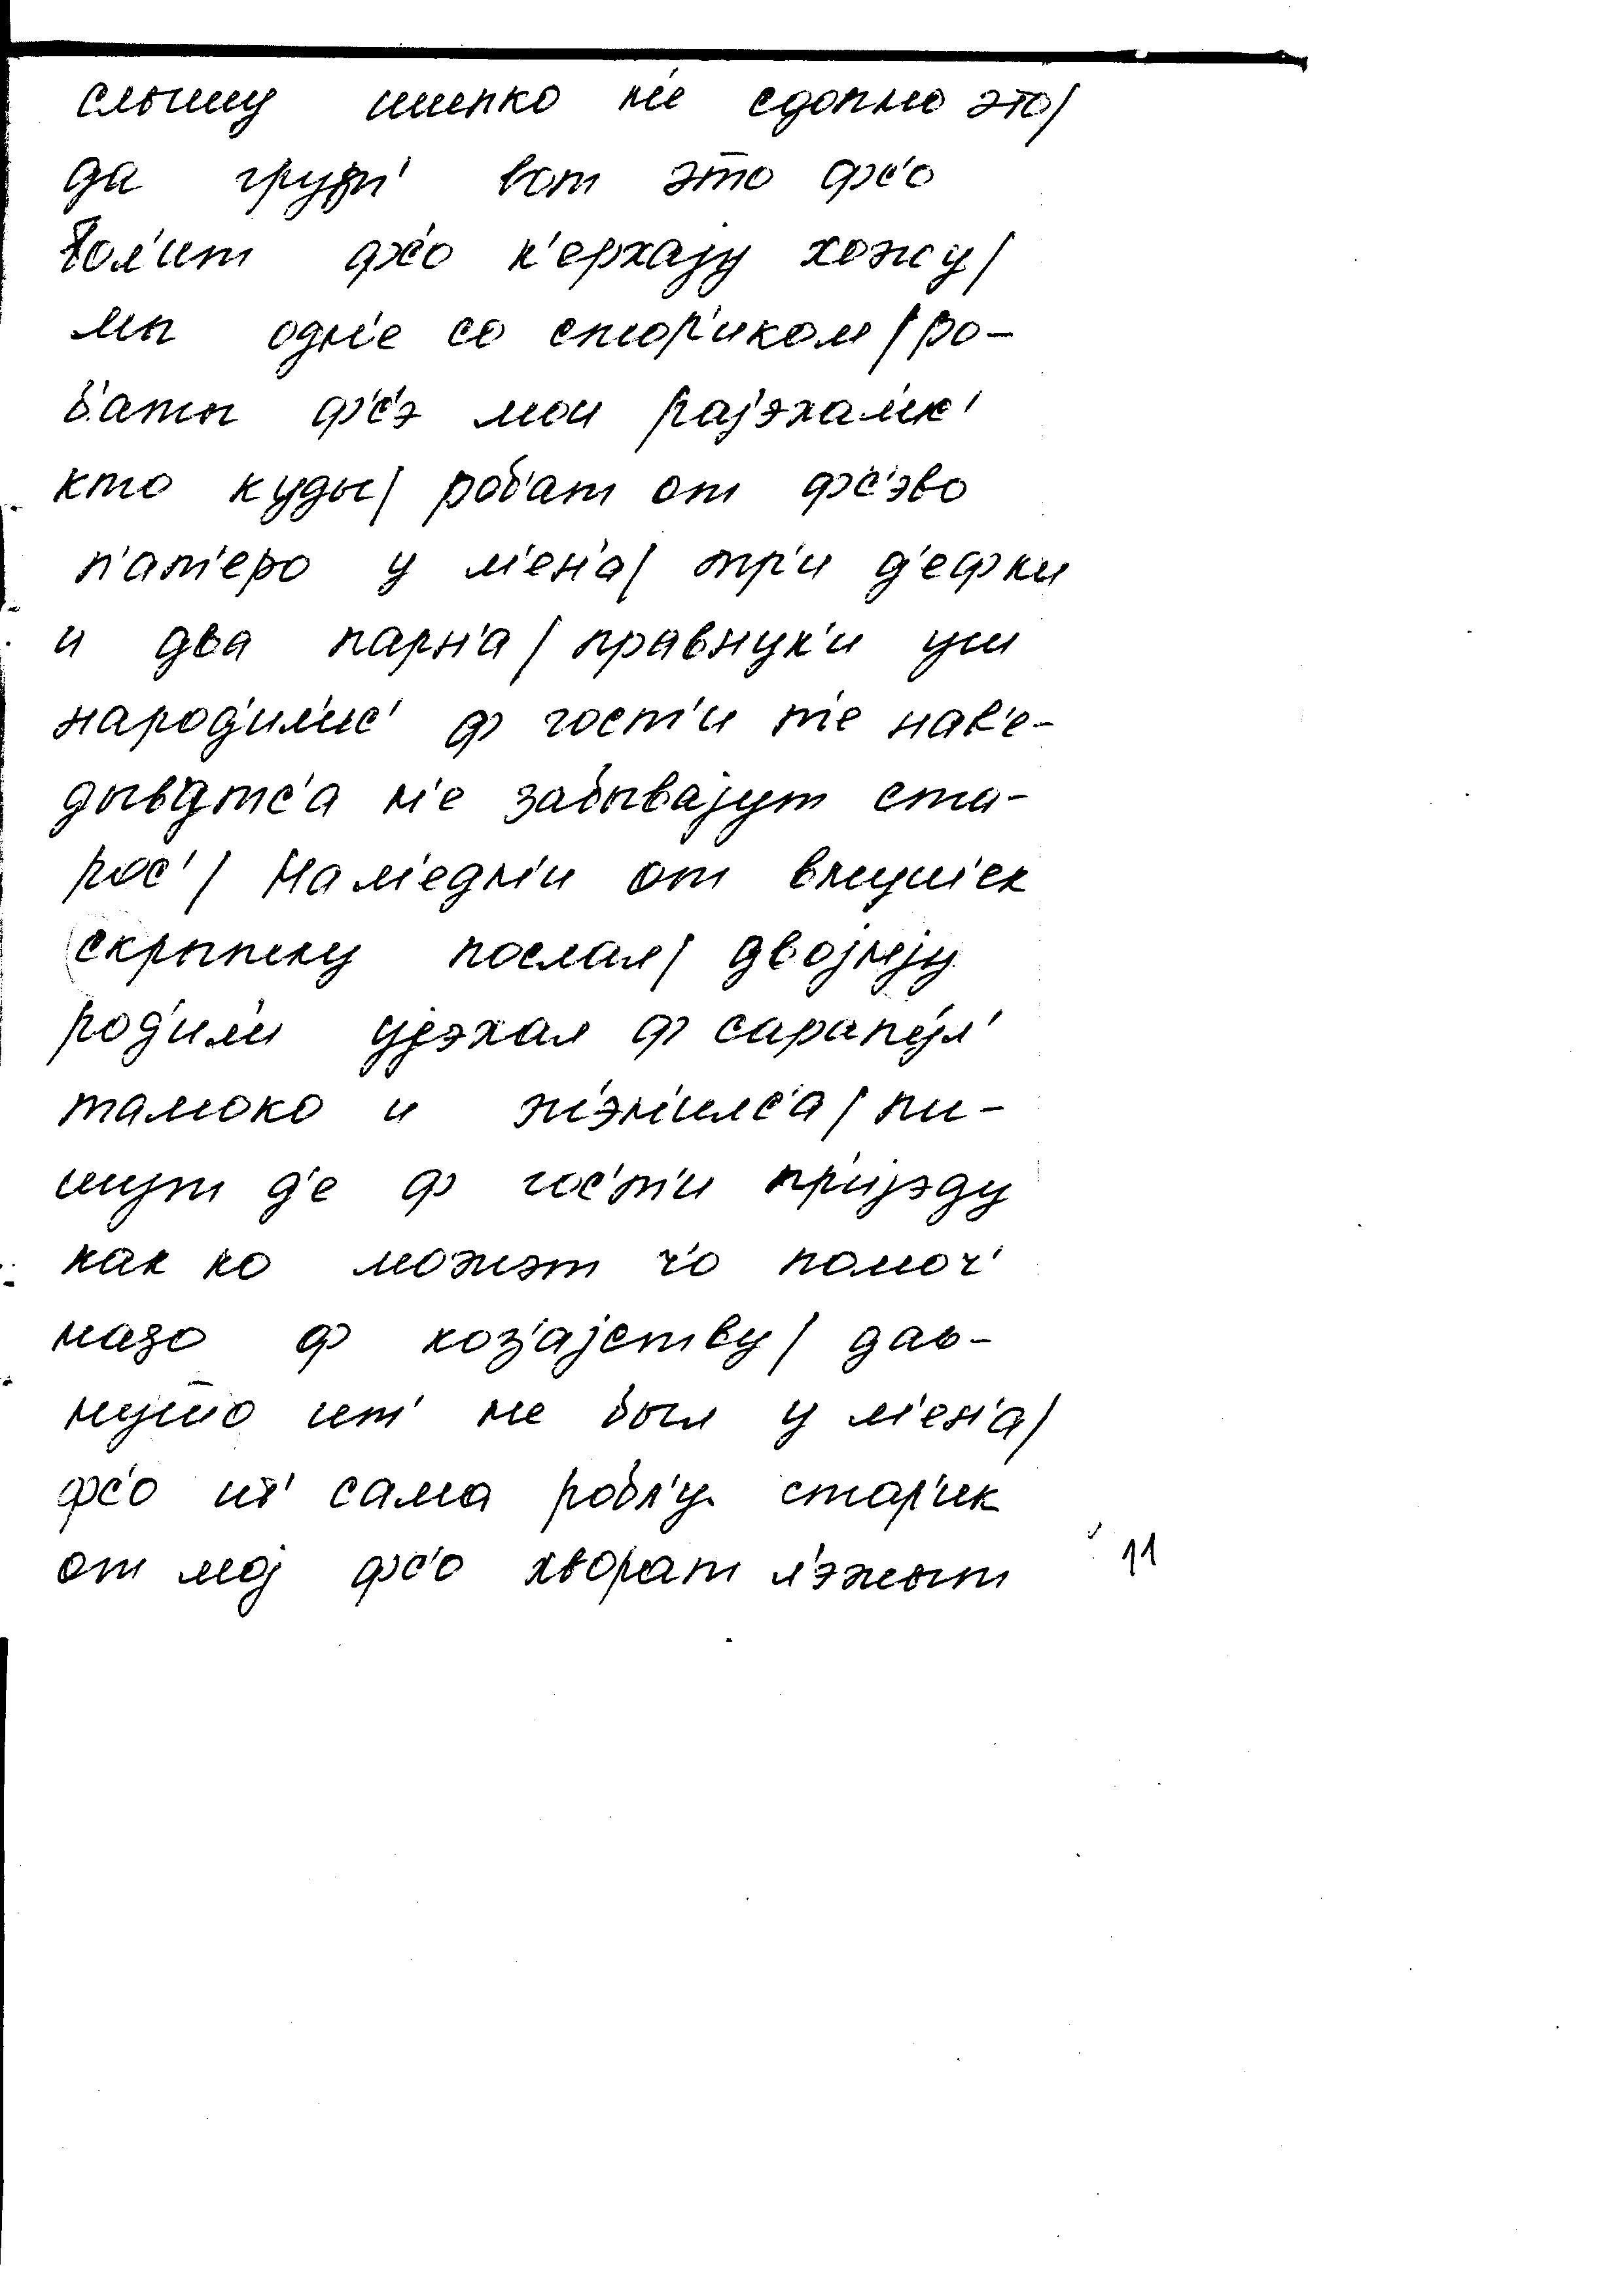 слышу шыпко н'е сдопно это/
да груди' вот это фс'о
бол'ит фс'о к'ерхаjу хожу/
мы одн'е со стор'иком/ро-
б'аты ф'с'э мои раjэхал'ис'
кто куды/ роб'ат от фс'эво
п'ат'еро у м'ен'а/ тр'и д'ефки
и два парн'а/ правнук'и уш
народ'ил'ис' ф гост'и т'е нав'е-
дываjтс'а н'е забываjут ста-
рос'/ нам'едн'и от внуш'ек
скрыпку послал/ двоjнjу
род'ил'и уjэхал ф сарапул'
тамоко и ж'эн'илс'а/ пи-
шут д'е ф гос'т'и пр'иjэду
как ко можэт ч'о помоч'
надо ф хоз'аjству/ дав-
нушо шт' не был у м'ен'а/
фс'о шт' сама робл'у стар'ик
от моj фс'о хворат л'эжыт
11